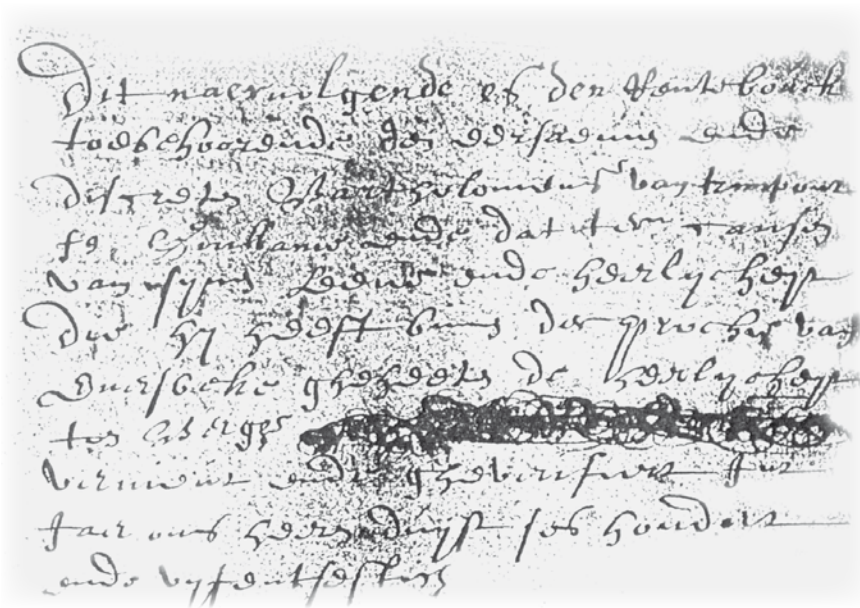 Dit naervolgende es den Rentebouck
toebehoorende den eersaemen ende
discreten Bartholomeus van
fs. ende dat ter causen
van syne Leene ende heerlycheyt
die hy heeft binnen de prochie van
gheheeten de heerlycheyt
ten Berghe
vernieut ende ghevisiteert Int
Jaer ons heeren duyst ses hondert
ende vyfentsestich